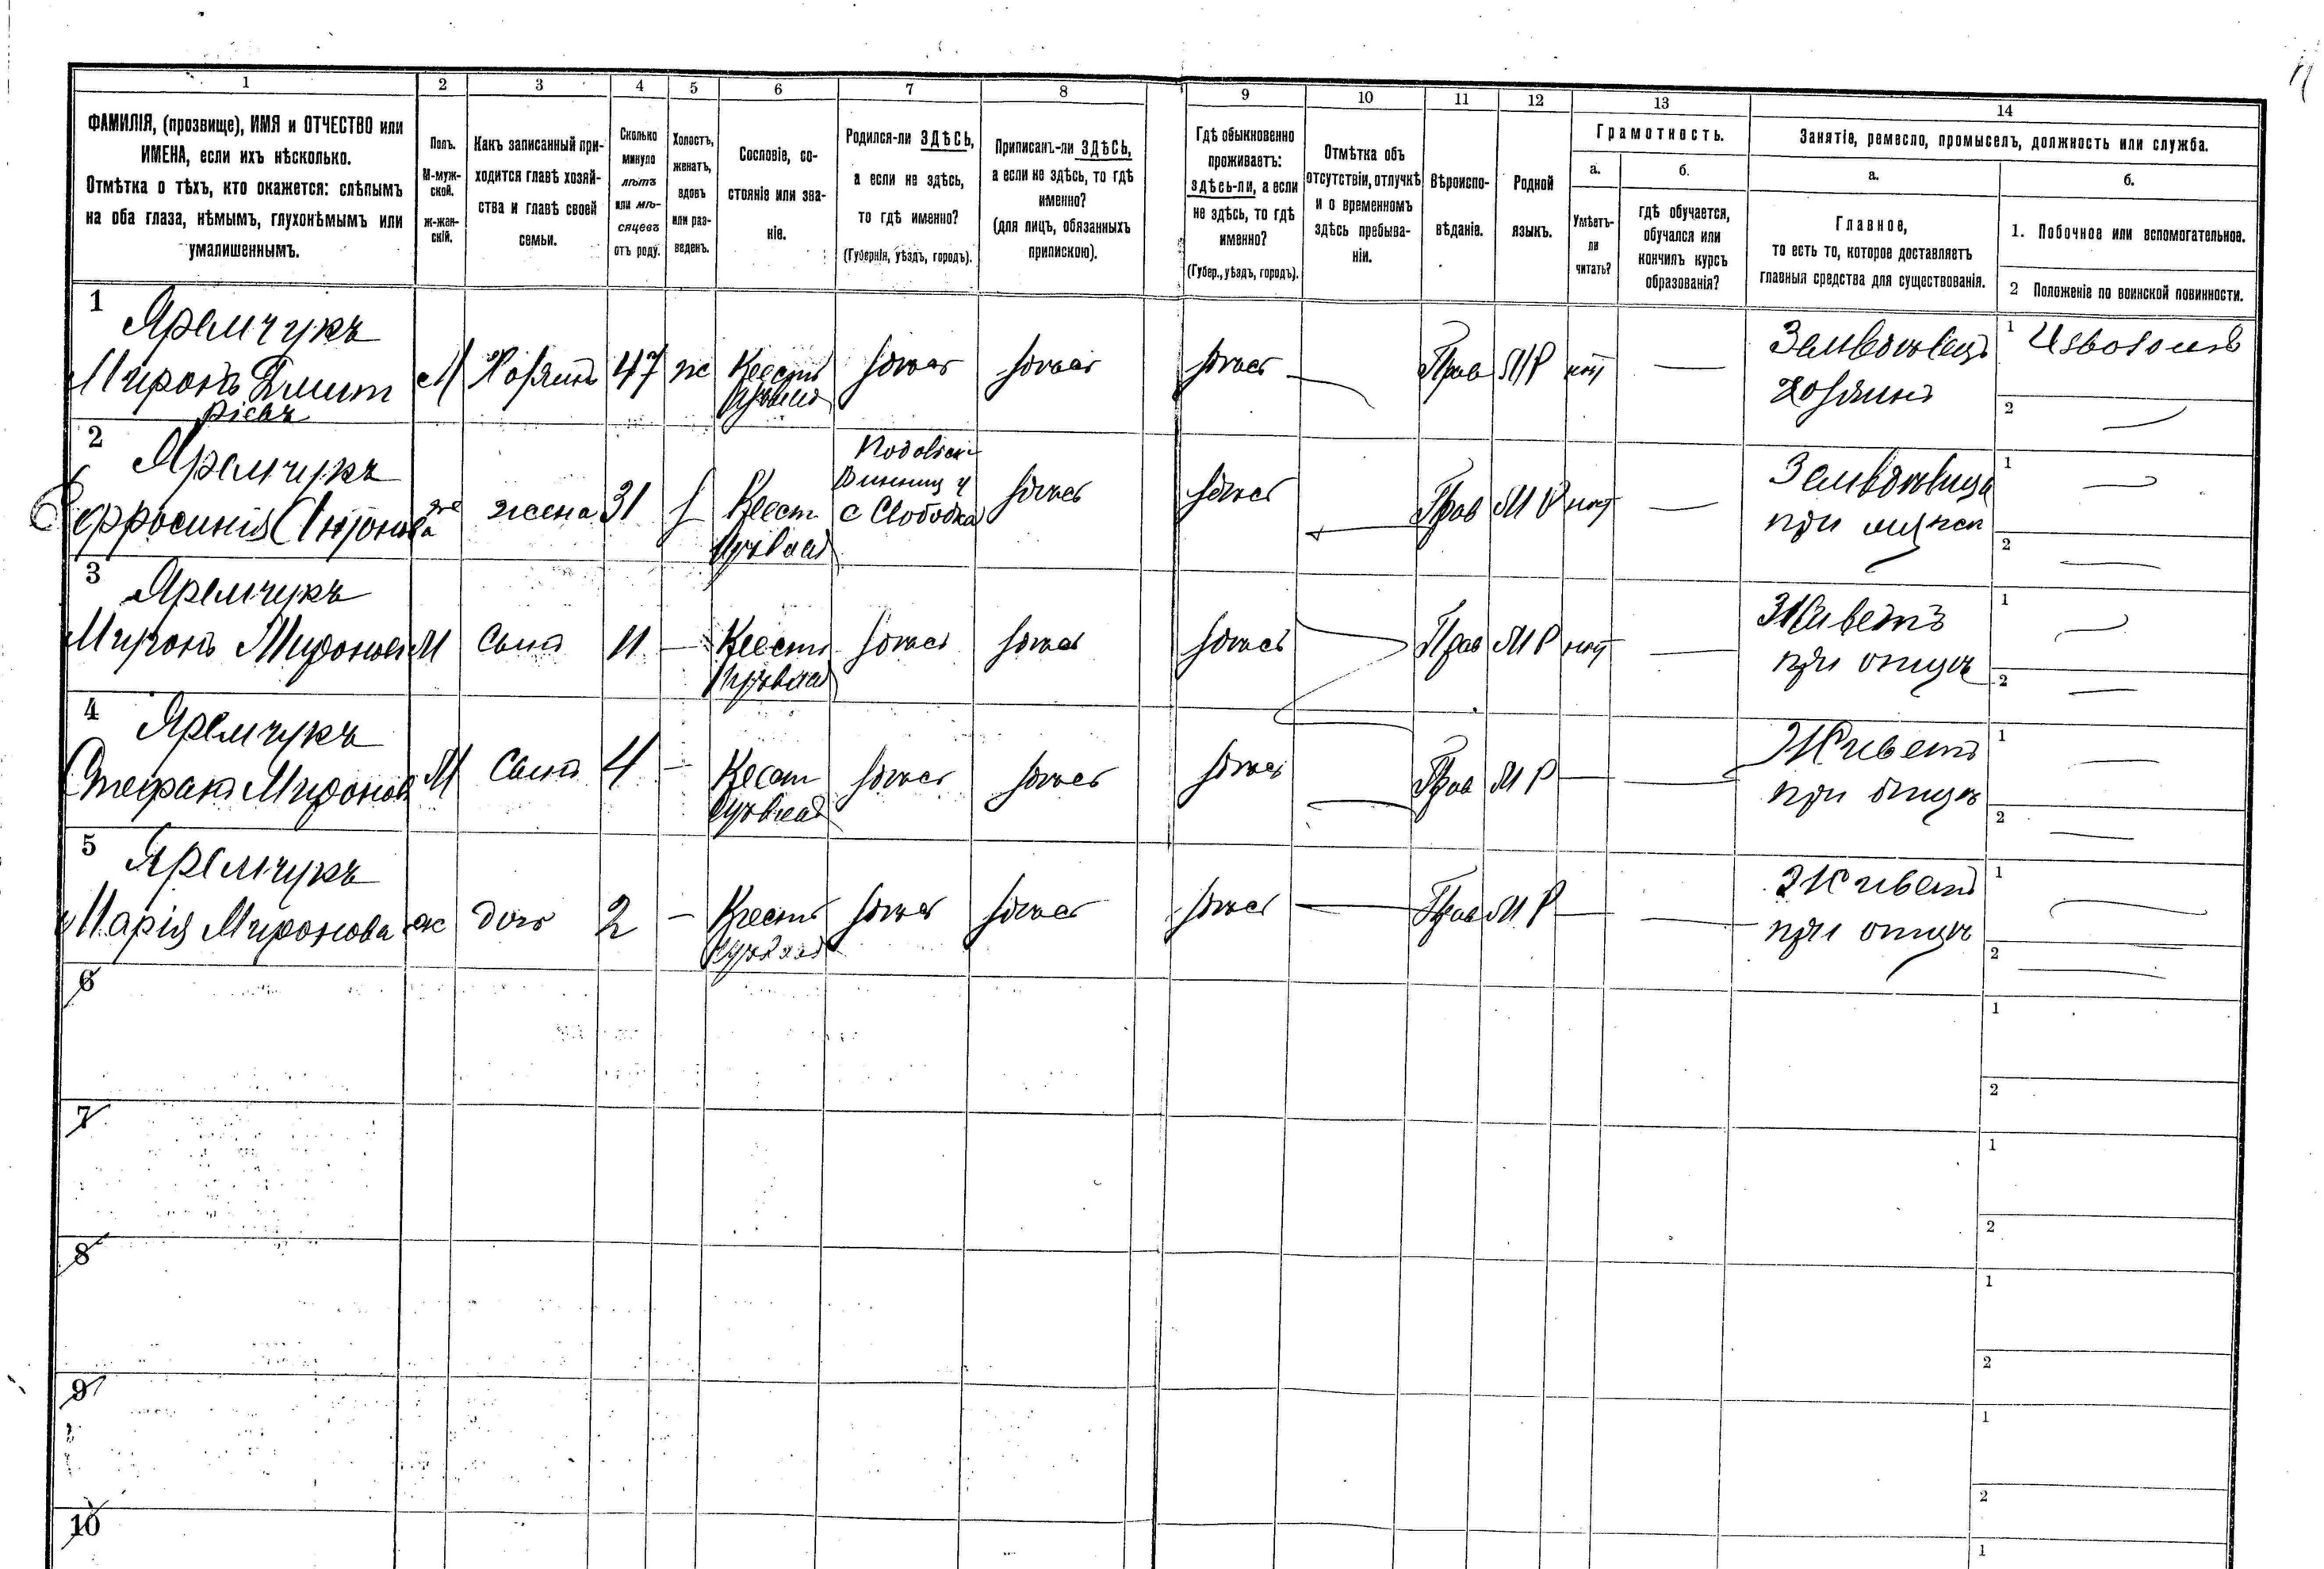 1 2 3 4 5 6 7 8 9 10 11 12 13 14
ФАМИЛІЯ, (прозвище), ИМЯ и ОТЧЕСТВО или
ИМЕНА, если ихъ нѣсколько.
Отмѣтка о тѣхъ, кто окажется: слѣпымъ
на оба глаза, нѣмымъ, глухонѣмымъ или
умалишеннымъ.
Полъ.
М-муж-
ской.
ж-жен-
скій.
Какъ записанный при-
ходится главѣ хозяй-
ства и главѣ своей
семьи.
Сколько
минуло
лѣтъ
или мѣ-
сяцевъ
отъ роду.
Холостъ,
женатъ,
вдовъ
или раз-
веденъ.
Сословіе, со-
стояніе или зва-
ніе.
Родился-ли ЗДѢСЬ,
а если не здѣсь,
то гдѣ именно?
(Губернія, уѣздъ, городъ).
Приписанъ-ли ЗДѢСЬ,
а если не здѣсь, то гдѣ
именно?
(для лицъ, обязанныхъ
припискою).
Гдѣ обыкновенно
проживаетъ:
здѣсь-ли, а если
не здѣсь, то гдѣ
именно?
(Губер., уѣздъ, городъ).
Отмѣтка объ
отсутствіи, отлучкѣ
и о временномъ
здѣсь пребыва-
ніи.
Вѣроиспо-
вѣданіе.
Родной
языкъ.
Грамотность.
а.
Умѣетъ-
ли
читать?
б.
гдѣ обучается,
обучался или
кончилъ курсъ
образованія?
Занятіе, ремесло, промыселъ, должность или служба.
а.
Главное,
то есть то, которое доставляетъ
главныя средства для существованія.
б.
1. Побочное или вспомогательное.
2 Положеніе по воинской повинности.
1
Яремчукъ
Миронъ Дмит
ріевъ
М Хозяинъ 47 ж Крестъ здѣсь здѣсь здѣсь — Прав МР нѣт —
Земледѣлецъ
хозяинъ
1
2 —
2
Яремчукъ
Еффросинія Антонова
же жена 31 з Крест
Подольск
Винниц у
с Слободка
здѣсь здѣсь — Прав МР нѣт —
1 —
2 —
3
Яремчукъ
Миронъ Миронов
М Сынъ 11 — Крестъ здѣсь здѣсь здѣсь Прав МР нѣт —
Живетъ
при отцѣ
1 —
2 —
4
Яремчукъ
Стефанъ Миронов
М Сынъ 4 — Крест здѣсь здѣсь здѣсь — Прав МР — —
Живетъ
при отцѣ
1 —
2 —
5
Яремчукъ
Марія Миронова
ж дочь 2 — Крестъ здѣсь здѣсь здѣсь — Прав МР — —
Живетъ
при отцѣ
1 —
2 —
6
1
2
7
1
2
8
1
2
9
1
2
10
1